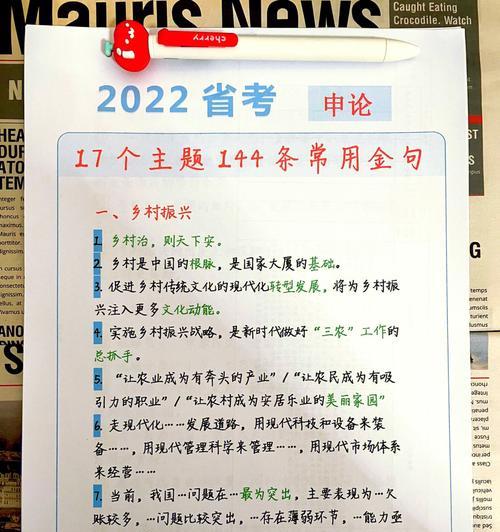 Mauris News
Caught Eating
Crocodile. Watch
cherry
2022 省考 申论
17个主题144条常用金句
一、乡村振兴
1. 乡村治，则天下安。
2. 乡村是中国的根脉，是国家大厦的基础。
3. 促进乡村传统文化的现代化转型发展，将为乡村振
兴注入更多文化动能。
4. 实施乡村振兴战略，是新时代做好“三农”工作的
总抓手。
5. “让农业成为有奔头的产业”/“让农民成为有吸
引力的职业”/“让农村成为安居乐业的美丽家园”
6. 走现代化……发展道路，用现代科技和设备来装
备……，用现代管理科学来管理……，用现代市场体系
来经营……
7. 当前，我国…问题在…最为突出，主要表现为…欠
账较多，…问题比较突出，…存在薄弱环节，…能力亟